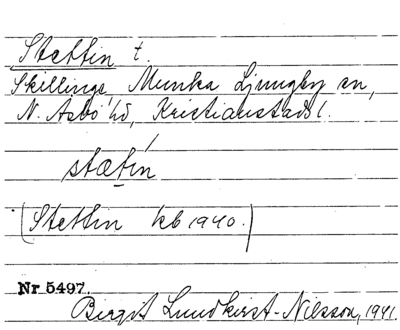 Stettin t.
Skillinge, Munka Ljungby sn,
N. Åsbo hd, Kristianstads l.
stætín
(Stettin kb 1940.)
Nr 5497.
Birgit Lundkvist-Nilsson, 1941.